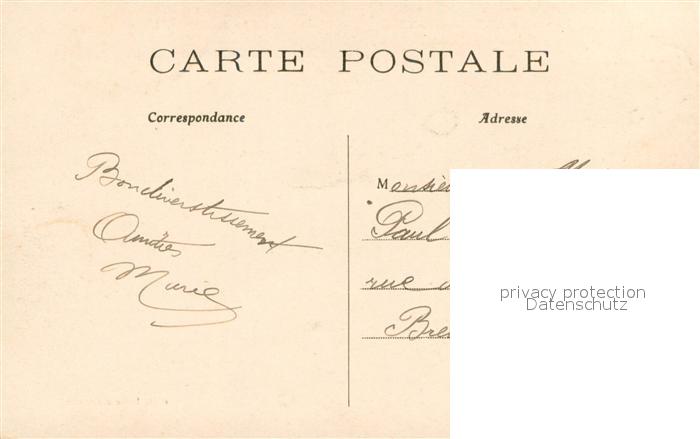 CARTE POSTALE
Correspondance
Adresse
Bon divertissement
Amitiés
Marie
Monsieu
Paul
rue
Bre
privacy protection
Datenschutz